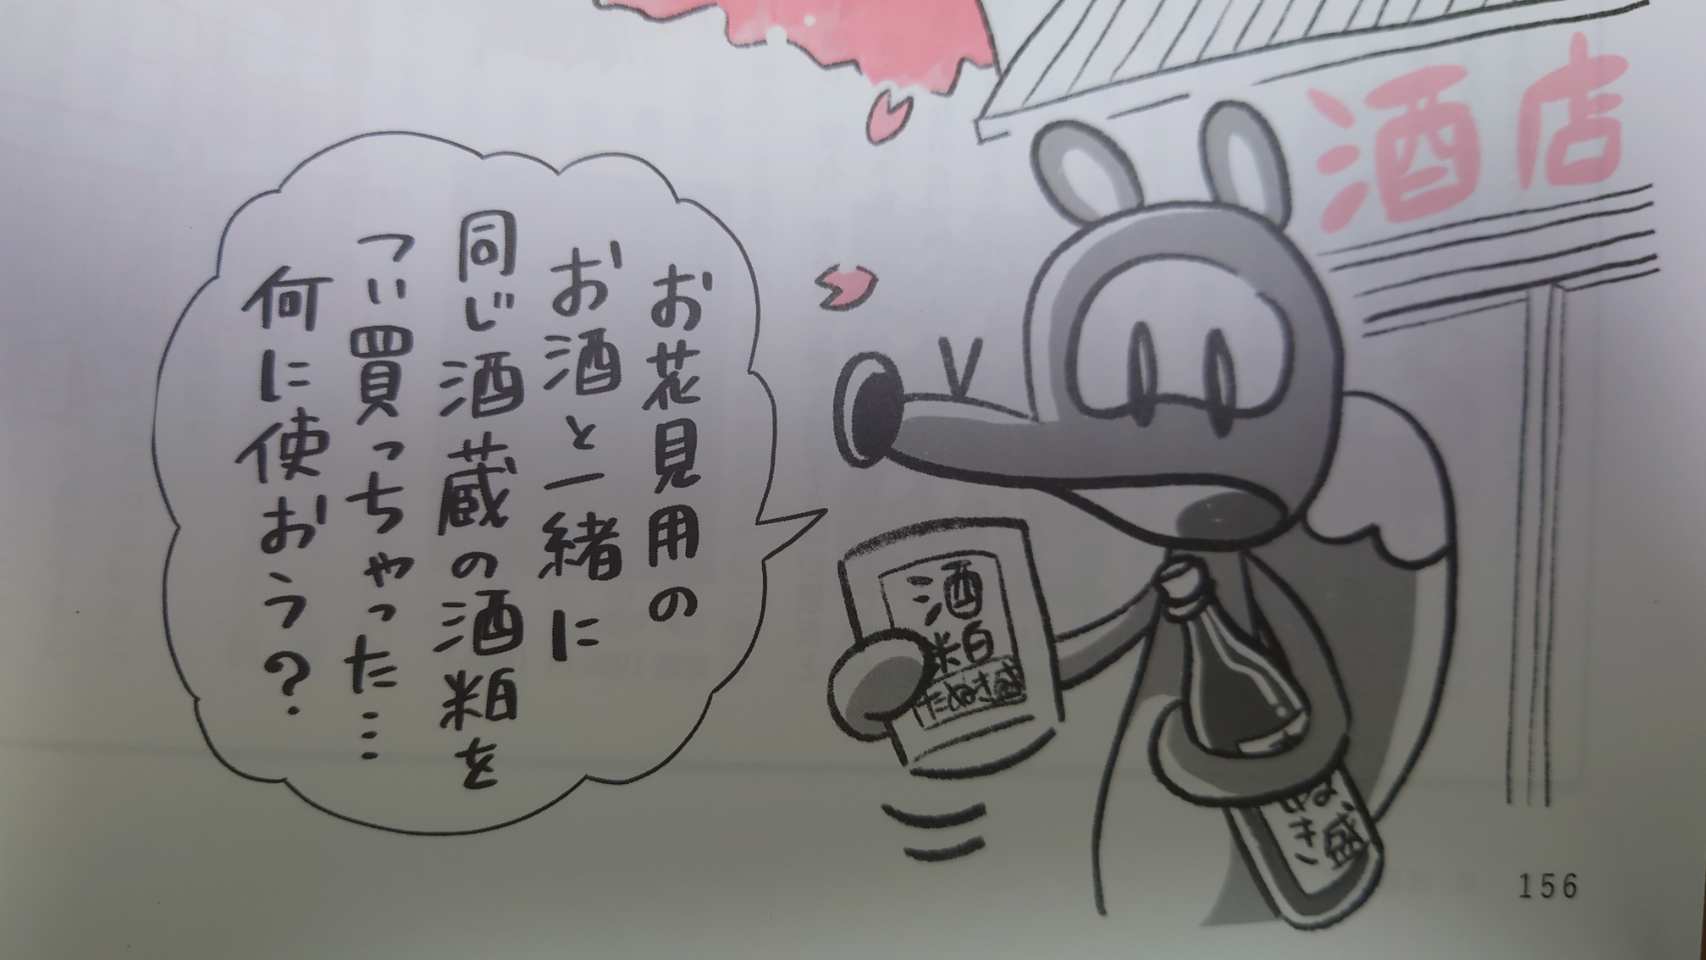 酒店
お花見用の
お酒と一緒に
同じ酒蔵の酒粕を
つい買っちゃった…
何に使おう?
酒
粕
たぬき盛
ぬき
盛
156